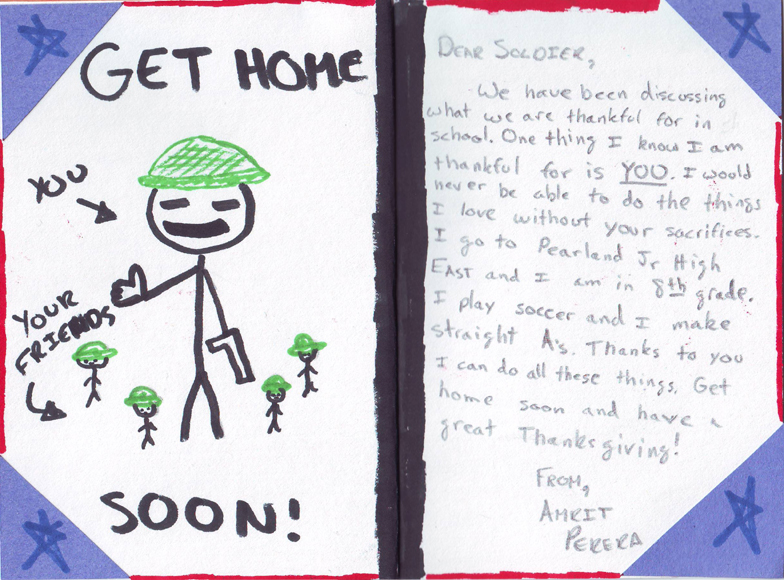 GET HOME
YOU
YOUR
FRIENDS
SOON!
DEAR SOLDIER,
We have been discussing
what we are thankful for in
school. One thing I know I am
thankful for is YOU. I would
never be able to do the things
I love without your sacrifices.
I go to Pearland Jr High
EAST and I am in 8th grade.
I play soccer and I make
straight A's. Thanks to you
I can do all these things. Get
home soon and have a
great Thanksgiving!
FROM,
AMRIT
PERERA